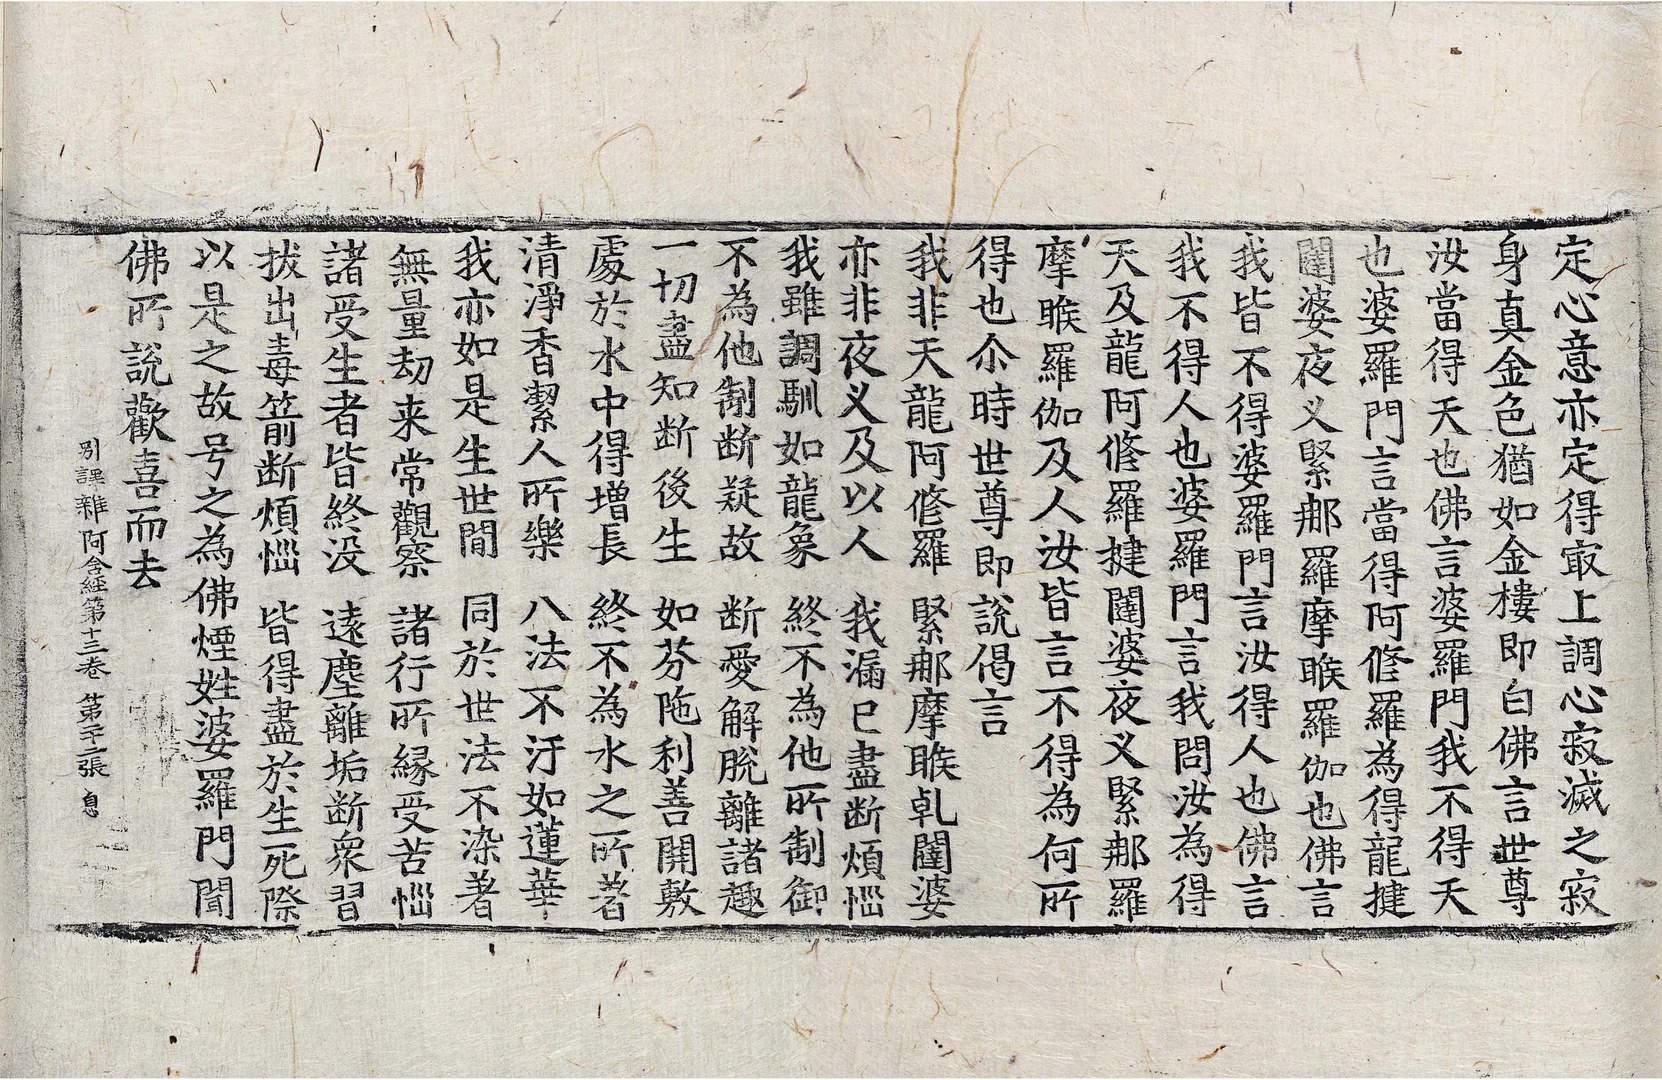 定心意亦定得㝡上調心寂滅之寂
身真金色猶如金樓即白佛言世尊
汝當得天也佛言婆羅門我不得天
也婆羅門言當得阿修羅為得龍揵
闥婆夜义緊那羅摩睺羅伽也佛言
我皆不得婆羅門言汝得人也佛言
我不得人也婆羅門言我問汝為得
天及龍阿修羅揵闥婆夜义緊那羅
摩睺羅伽及人汝皆言不得為何所
得也尒時世尊即說偈言
我非天龍阿修羅　緊那摩睺乹闥婆
亦非夜义及以人　我漏已盡断煩惱
我雖調馴如龍象　終不為他所制御
不為他制断疑故　断愛解脫離諸趣
一切盡知断後生　如芬陁利善開敷
處於水中得增長　終不為水之所著
清淨香潔人所樂　八法不汙如蓮華
我亦如是生世間　同於世法不染著
無量劫来常觀察　諸行所縁受苦惱
諸受生者皆終没　遠塵離垢断衆習
拔出毒箭断煩惱　皆得盡於生死際
以是之故号之為佛煙姓婆羅門聞
佛所說歡喜而去
別譯雜阿含經第十三卷　第二張　息